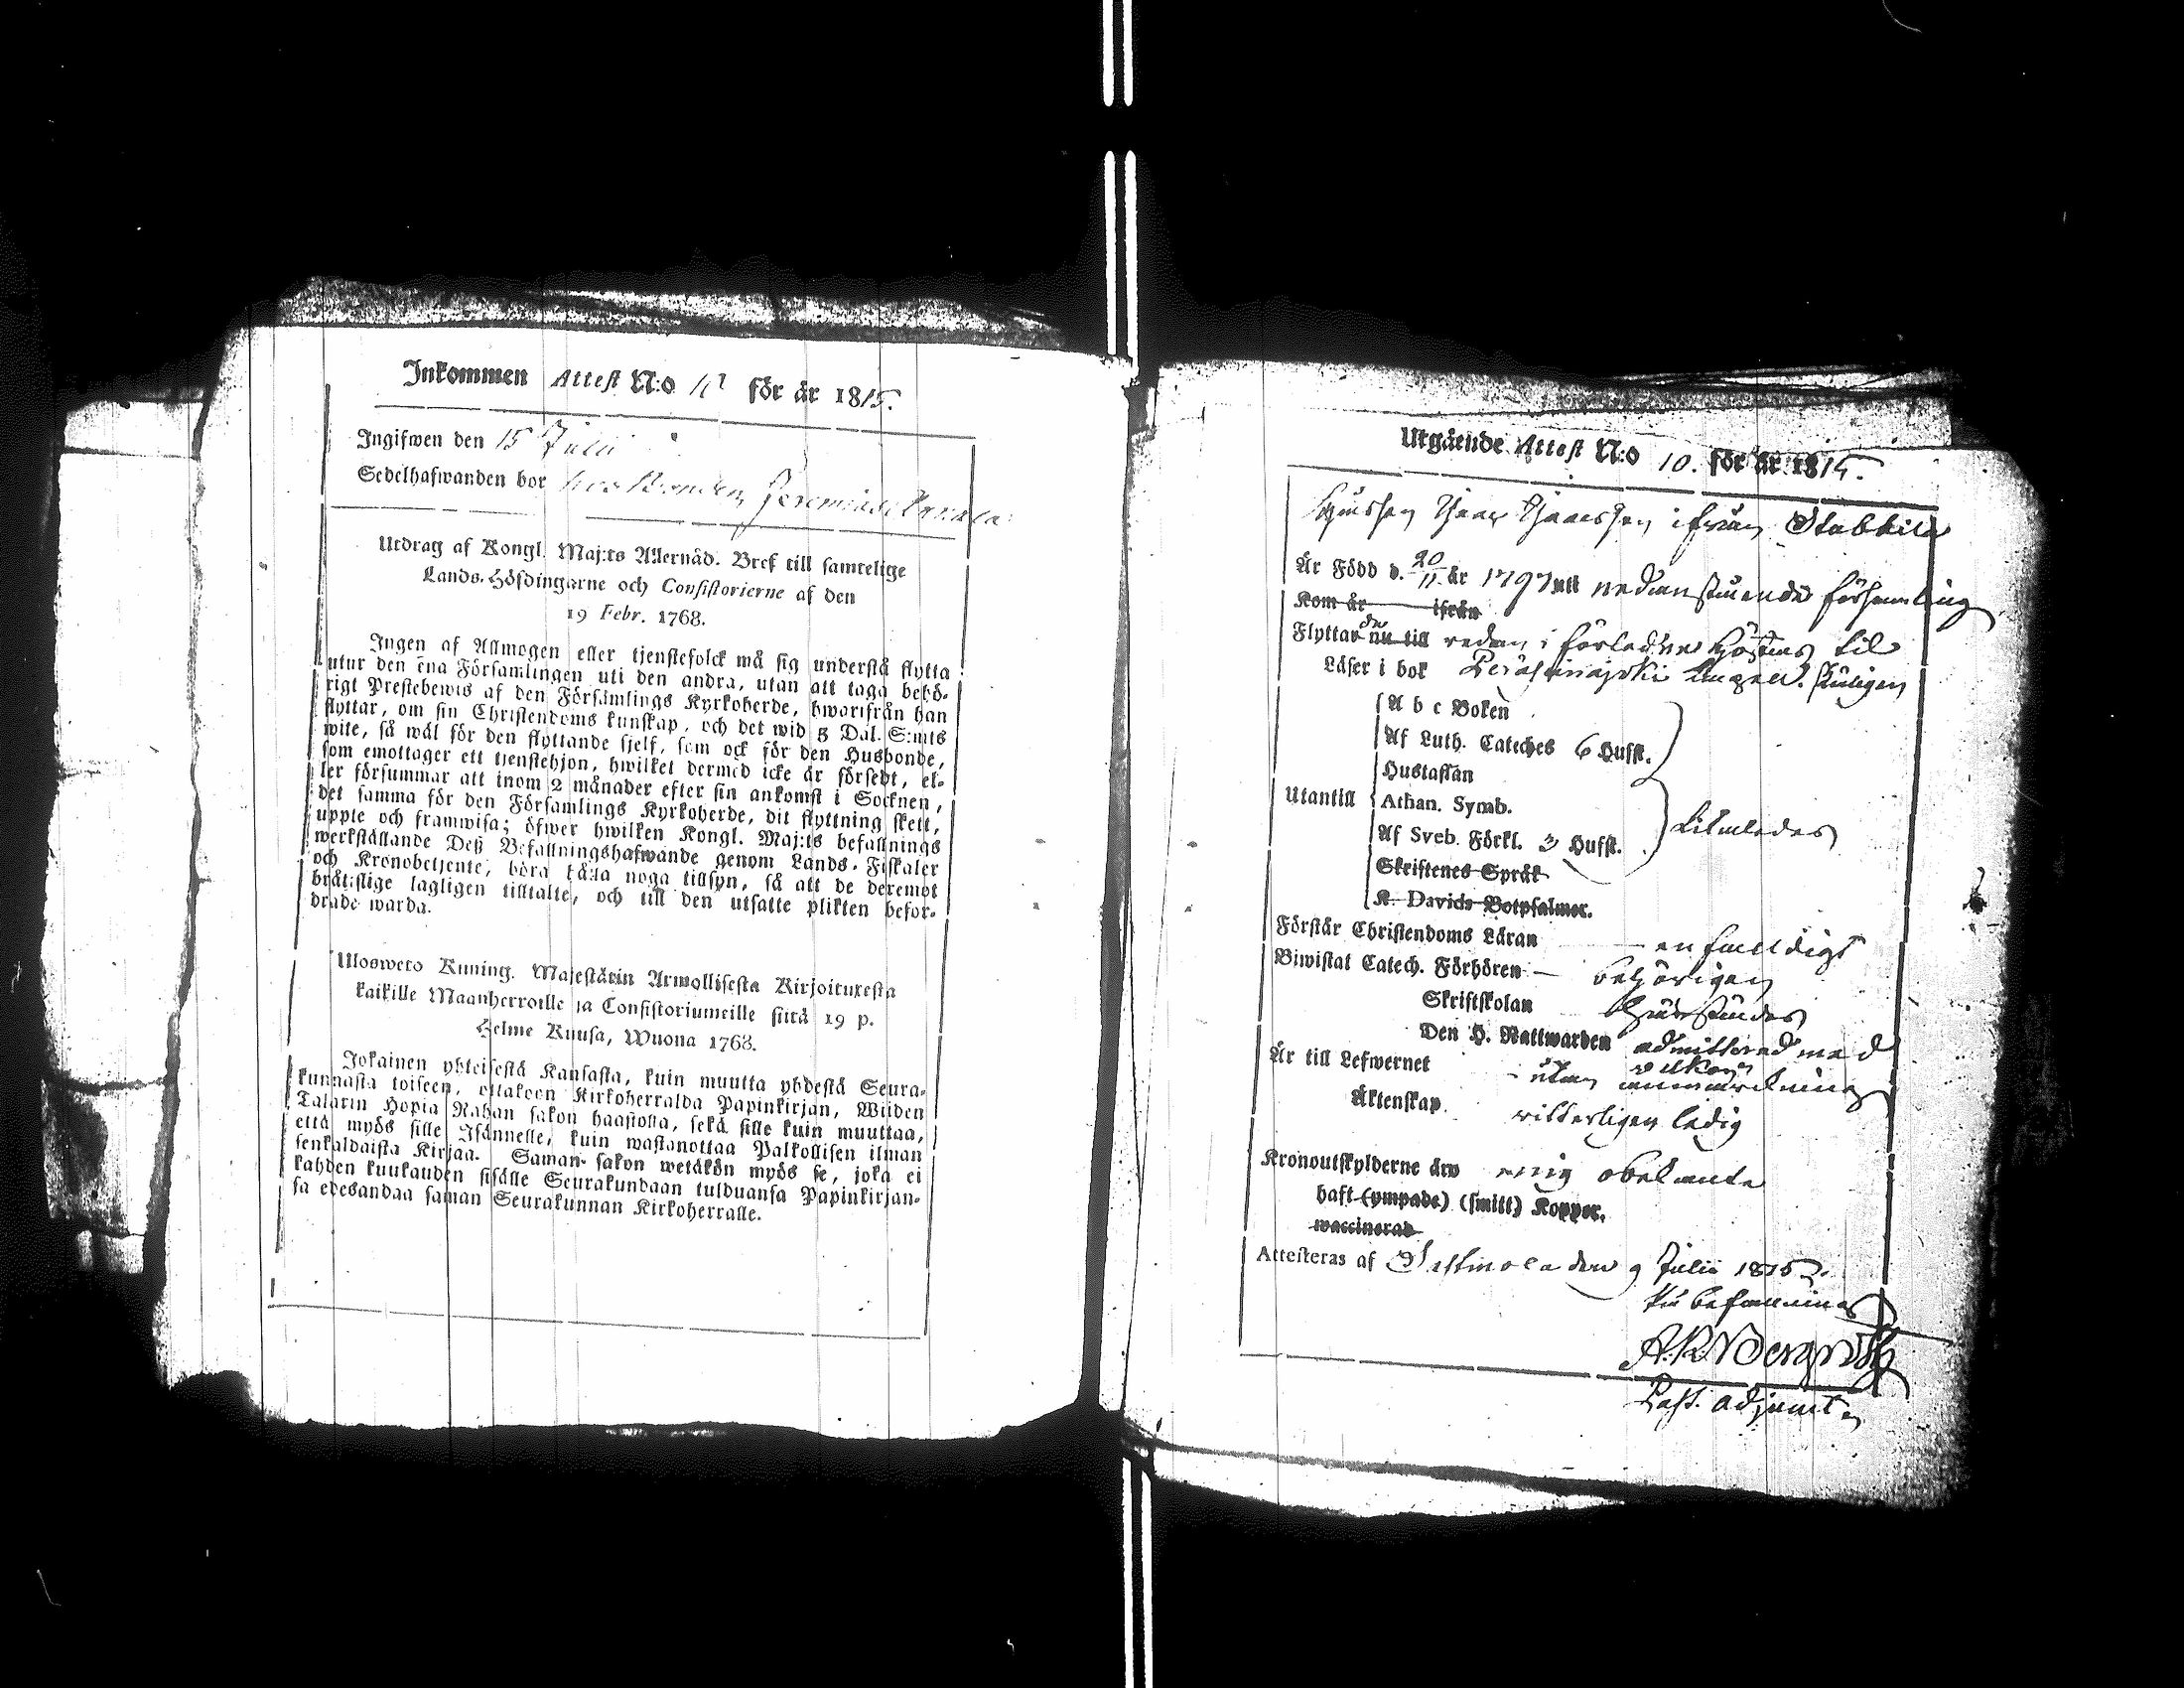 Inkommen Attest N:o för år 1815.
Ingifwen den 15 Julii
Sedelhafwanden bor hos Bonden Jeremias
Utdrag af Kongl. Maj:ts Allernåd. Bref till samtelige
Lands-Höfdingarne och Consistorierne af den
19 Febr. 1768.
Ingen af Allmogen eller tjenstefolck må sig understå flytta
utur den ena Församlingen uti den andra, utan att taga behö-
rigt Prestebewis af den Församlings Kyrkoherde, hwarifrån han
flyttar, om sin Christendoms kunskap, och det wid 5 Dal. S:mts
wite, så wäl för den flyttande sjelf, som ock för den Husbonde,
som emottager ett tjenstehjon, hwilket dermed icke är försedt, el-
ler försummar att inom 2 månader efter sin ankomst i Socknen,
det samma för den Församlings Kyrkoherde, dit flyttning skett,
uppte och framwisa; öfwer hwilken Kongl. Maj:ts befallnings
werkställande Deß Befallningshafwande genom Lands-Fiskaler
och Kronobetjente, böra hålla noga tillsyn, så att de deremot
brätslige lagligen tilltalte, och till den utsatte plikten befor-
drade warda.
Ulosweto Kuning. Majestätin Armollisesta Kirjoituxesta
kaikille Maanherroille ja Consistoriumeille siitä 19 p.
Helme Kuusa, Wuona 1768.
Jokainen yhteisestä Kansasta, kuin muutta yhdestä Seura-
kunnasta toiseen, ottakoon Kirkoherralda Papinkirjan, Wiiden
Talarin Hopia Rahan sakon haastolla, sekä sille kuin muuttaa,
että myös sille Isännelle, kuin wastanottaa Palkollisen ilman
senkaldaista Kirjaa. Saman sakon wetäkön myös se, joka ei
kahden kuukauden sisälle Seurakundaan tulduansa Papinkirjan-
sa edesandaa saman Seurakunnan Kirkoherralle.
Utgående Attest N:o 10. för år 1815.
ifrån Stabbila
Är Född d. 20/11 år 1797 uti nedanstående församling
Kom år ifrån
Flyttar de nu till redan i förledne Höstas til
Läser i bok Peräseinäjoki
A b c Boken
Af Luth. Cateches 6 Hufst.
Hustaflan
Utantill Athan. Symb.
Af Sveb. Förkl. 3 Hufst.
Skriftenes Språk
K. Davids Botpsalmer.
Förstår Christendoms Läran enfaldigt
Biwistat Catech. Förhören behörigen
Skriftskolan
Den H. Nattwarden admitterad med
Är till Lefwernet utan anmärkning
Äktenskap. witterligen ledig
Kronoutskylderne äro mig obekante
haft (ympade) (smitt) Koppor.
waccinerad
Attesteras af den 9 Julii 1815.
På befallning
Past. adjunct